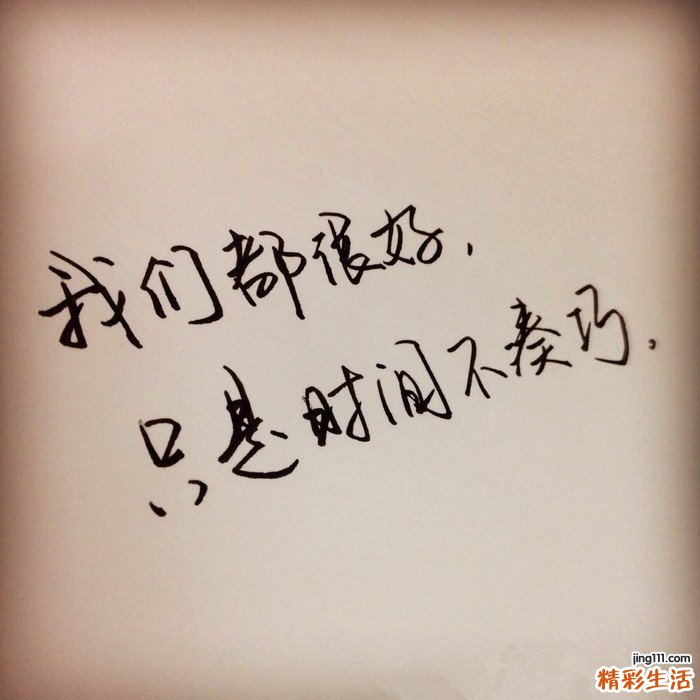 我们都很好.
只是时间不凑巧.
jing111.com
精彩生活